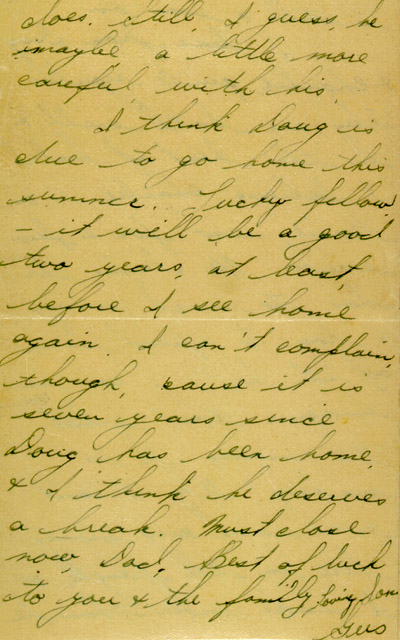 does. Still, I guess, he
maybe a little more
careful with his.
I think Doug is
due to go home this
summer. Lucky fellow
- it will be a good
two years, at least,
before I see home
again. I can't complain,
though, 'cause it is
seven years since
Doug has been home,
& I think he deserves
a break. Must close
now, Dad. Best of luck
to you & the family Loving Son
Gus